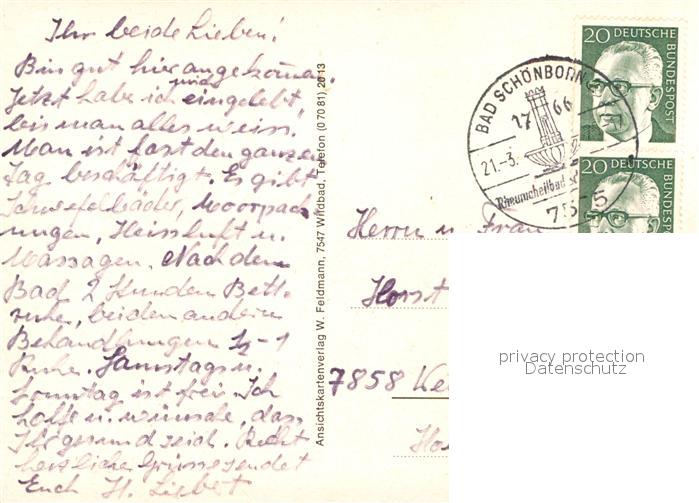 Ihr beide Lieben!
Bin gut hier angekomen.
Jetzt habe ich mich eingelebt,
bis man alles weiss.
Man ist fast den ganzen
Tag beschäftigt. Es gibt
Schwefelbäder, Moorpack
ungen, Heissluft u.
Massagen. Nach dem
Bad 2 Stunden Bett-
ruhe, bei den andern
Behandlungen ½-1
Ruhe. Samstags u.
Sonntag ist frei. Ich
hoffe u. wünsche, dass
Ihr gesund seid. Recht
herzliche Grüsse sendet
Euch H. Liebert
Ansichtskartenverlag W. Feldmann, 7547 Wildbad, Telefon (0 70 81) 2613
BAD SCHÖNBORN
17
21.-3.
Rheumaheilbad
75-5
20 DEUTSCHE
BUNDESPOST
20 DEUTSCHE
BUNDESPOST
Herrn u. Frau
Horst
7858
privacy protection
Datenschutz